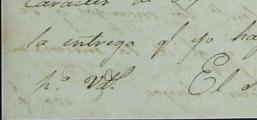 Caracter de
la entrega q.^e yo ha
p.^a Vd. El